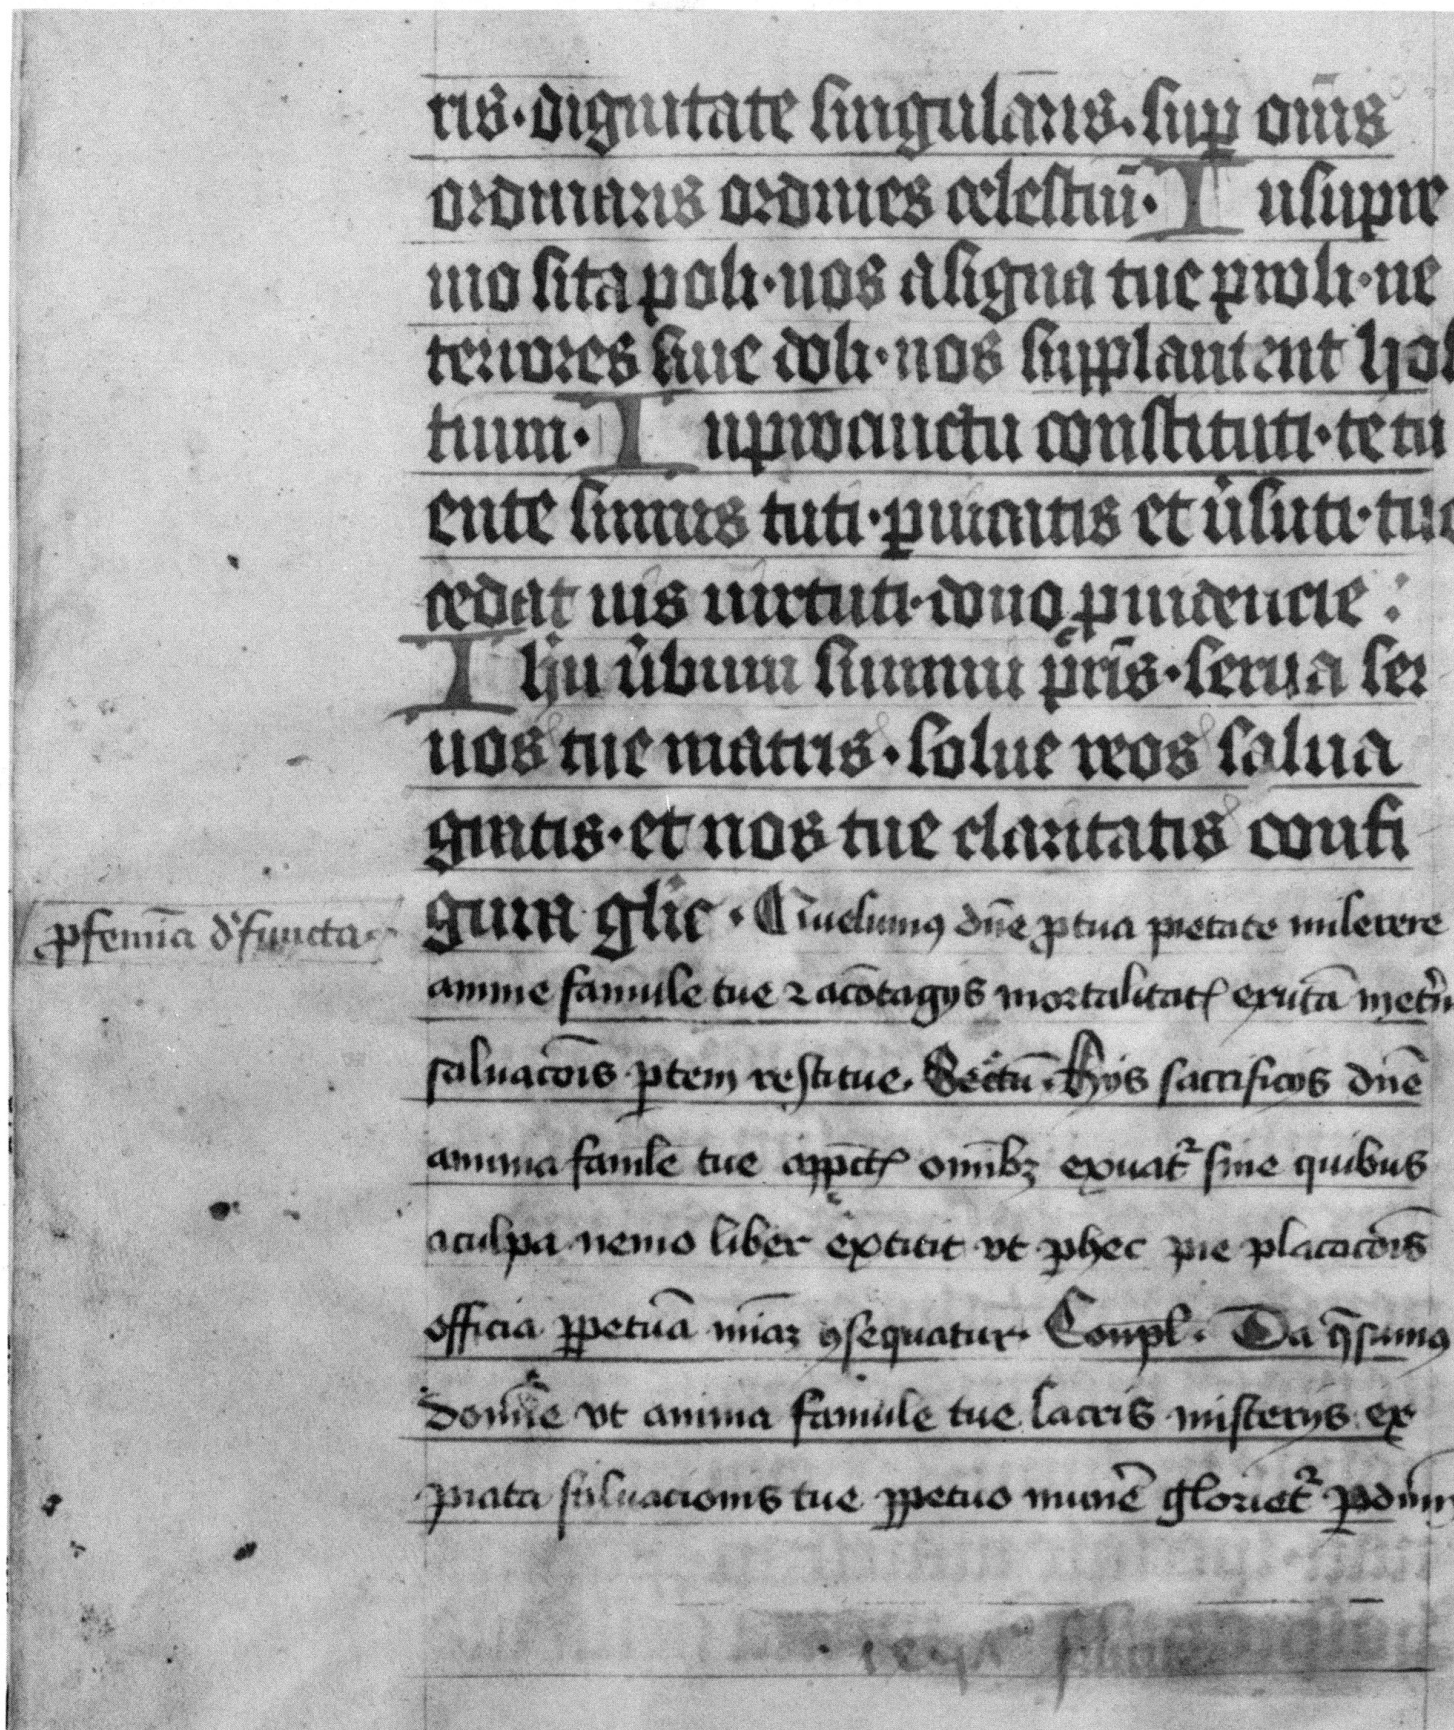 ris · dignitate singularis · sup om̄is
ordinaris ordines celestiū · In supre
mo sita poli · nos assigna tue proli · ne
terrores siue doli · nos supplantent hos
tium · In procinctu constituti · te tu
ente simus tuti · puicacis et ūsuti · tue
cedat uis uirtuti · dono puidencie :
Ihū ūbum summi pr̄is · serua ser
uos tue matris · solue reos salua
gratis · et nos tue claritatis confi
gura glīe · Quesumꝰ dn̄e ꝓ tua pietate miserere
ꝓ femīa dēfuncta
anime famule tue ⁊ a cōtagijs mortalitatꝭ exutā in et̄n
saluacōis ptem restitue · Secretū · Hijs sacrificijs dn̄e
anima famule tue a pctꝭ omībꝫ exuatᷣ sine quibus
a culpa nemo liber extitit vt p hec pie placacōis
officia ppetuā mīaꝫ ꝯsequatur · Conpl · Da q̄sumꝰ
domīe vt anima famule tue sacris misterijs ex
piata saluacionis tue ppetuo munē glorietᷣ p dnm